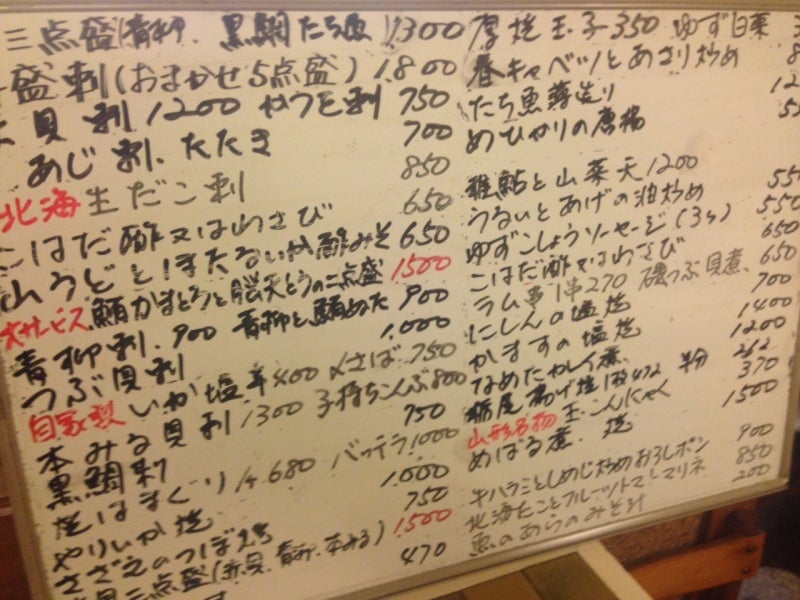 三点盛(青柳、黒鯛、たち魚 1300
盛刺(おまかせ5点盛) 1.800
貝刺 1200 やつを刺 750
あじ刺.たたき 700
北海生だこ刺 850
こはだ酢又はわさび 650
山うどとほたるいか酢みそ 650
大サービス 鮪かまとろと脳天とろの二点盛 1500
青柳刺.900 青柳と鮪ぬた 900
つぶ貝刺 1.000
自家製 いか塩辛 400 〆さば 750
本みる貝刺 1300 子持ちこんぶ 800
黒鯛刺 750
焼はまぐり 1ヶ 680 バッテラ 1000
やりいか焼 1.000
さざえのつぼ焼 750
三点盛(赤貝、青柳、本みる) 1500
470
厚焼玉子 350 ゆず白菜
春キャベツとあさり炒め
たち魚薄造り
めひかりの唐揚
稚鮎と山菜天 1200
うるいとあげの油炒め 550
ゆずこしょうソーセージ(3ヶ) 550
こはだ酢又はわさび 650
ラム串1串270 磯つぶ貝煮 650
にしんの塩焼 700
かますの塩焼 1400
なめたかれい煮 1200
栃尾揚げ焼 1枚472 半分 262
山形名物 玉こんにゃく 370
めばる煮.焼 1500
牛ハラミとしめじ炒めおろしポン 900
北海たことフルーツトマトマリネ 850
魚のあらのみそ汁 200